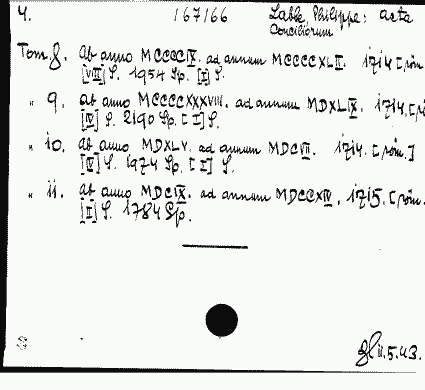 4. 167/66 Labbe, Philippe: acta
Conciliorum
Tom. 8. Ab anno MCCCCIX. ad annum MCCCCXLII. 1714 [röm.
[VII] S. 1954 Sp. [I] S.
" 9. ab anno MCCCCXXXVIII. ad annum MDXLIX. 1714. [röm.
[IV] S. 2190 Sp. [I] S.
" 10. ab anno MDXLV. ad annum MDCVII. 1714. [röm.]
[IV] S. 1974 Sp. [I] S.
" 11. ab anno MDCIX. ad annum MDCCXIV. 1715. [röm.
[II] S. 1784 Sp.
11.5.43.